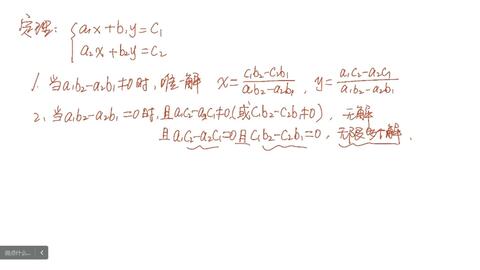 定理: { a₁x + b₁y = c₁
a₂x + b₂y = c₂
1. 当a₁b₂-a₂b₁≠0时, 唯一解 x = (c₁b₂-c₂b₁)/(a₁b₂-a₂b₁), y = (a₁c₂-a₂c₁)/(a₁b₂-a₂b₁)
2. 当a₁b₂-a₂b₁=0时, 且a₁c₂-a₂c₁≠0(或c₁b₂-c₂b₁≠0), 无解
且a₁c₂-a₂c₁=0且c₁b₂-c₂b₁=0, 无限多个解.
说点什么...